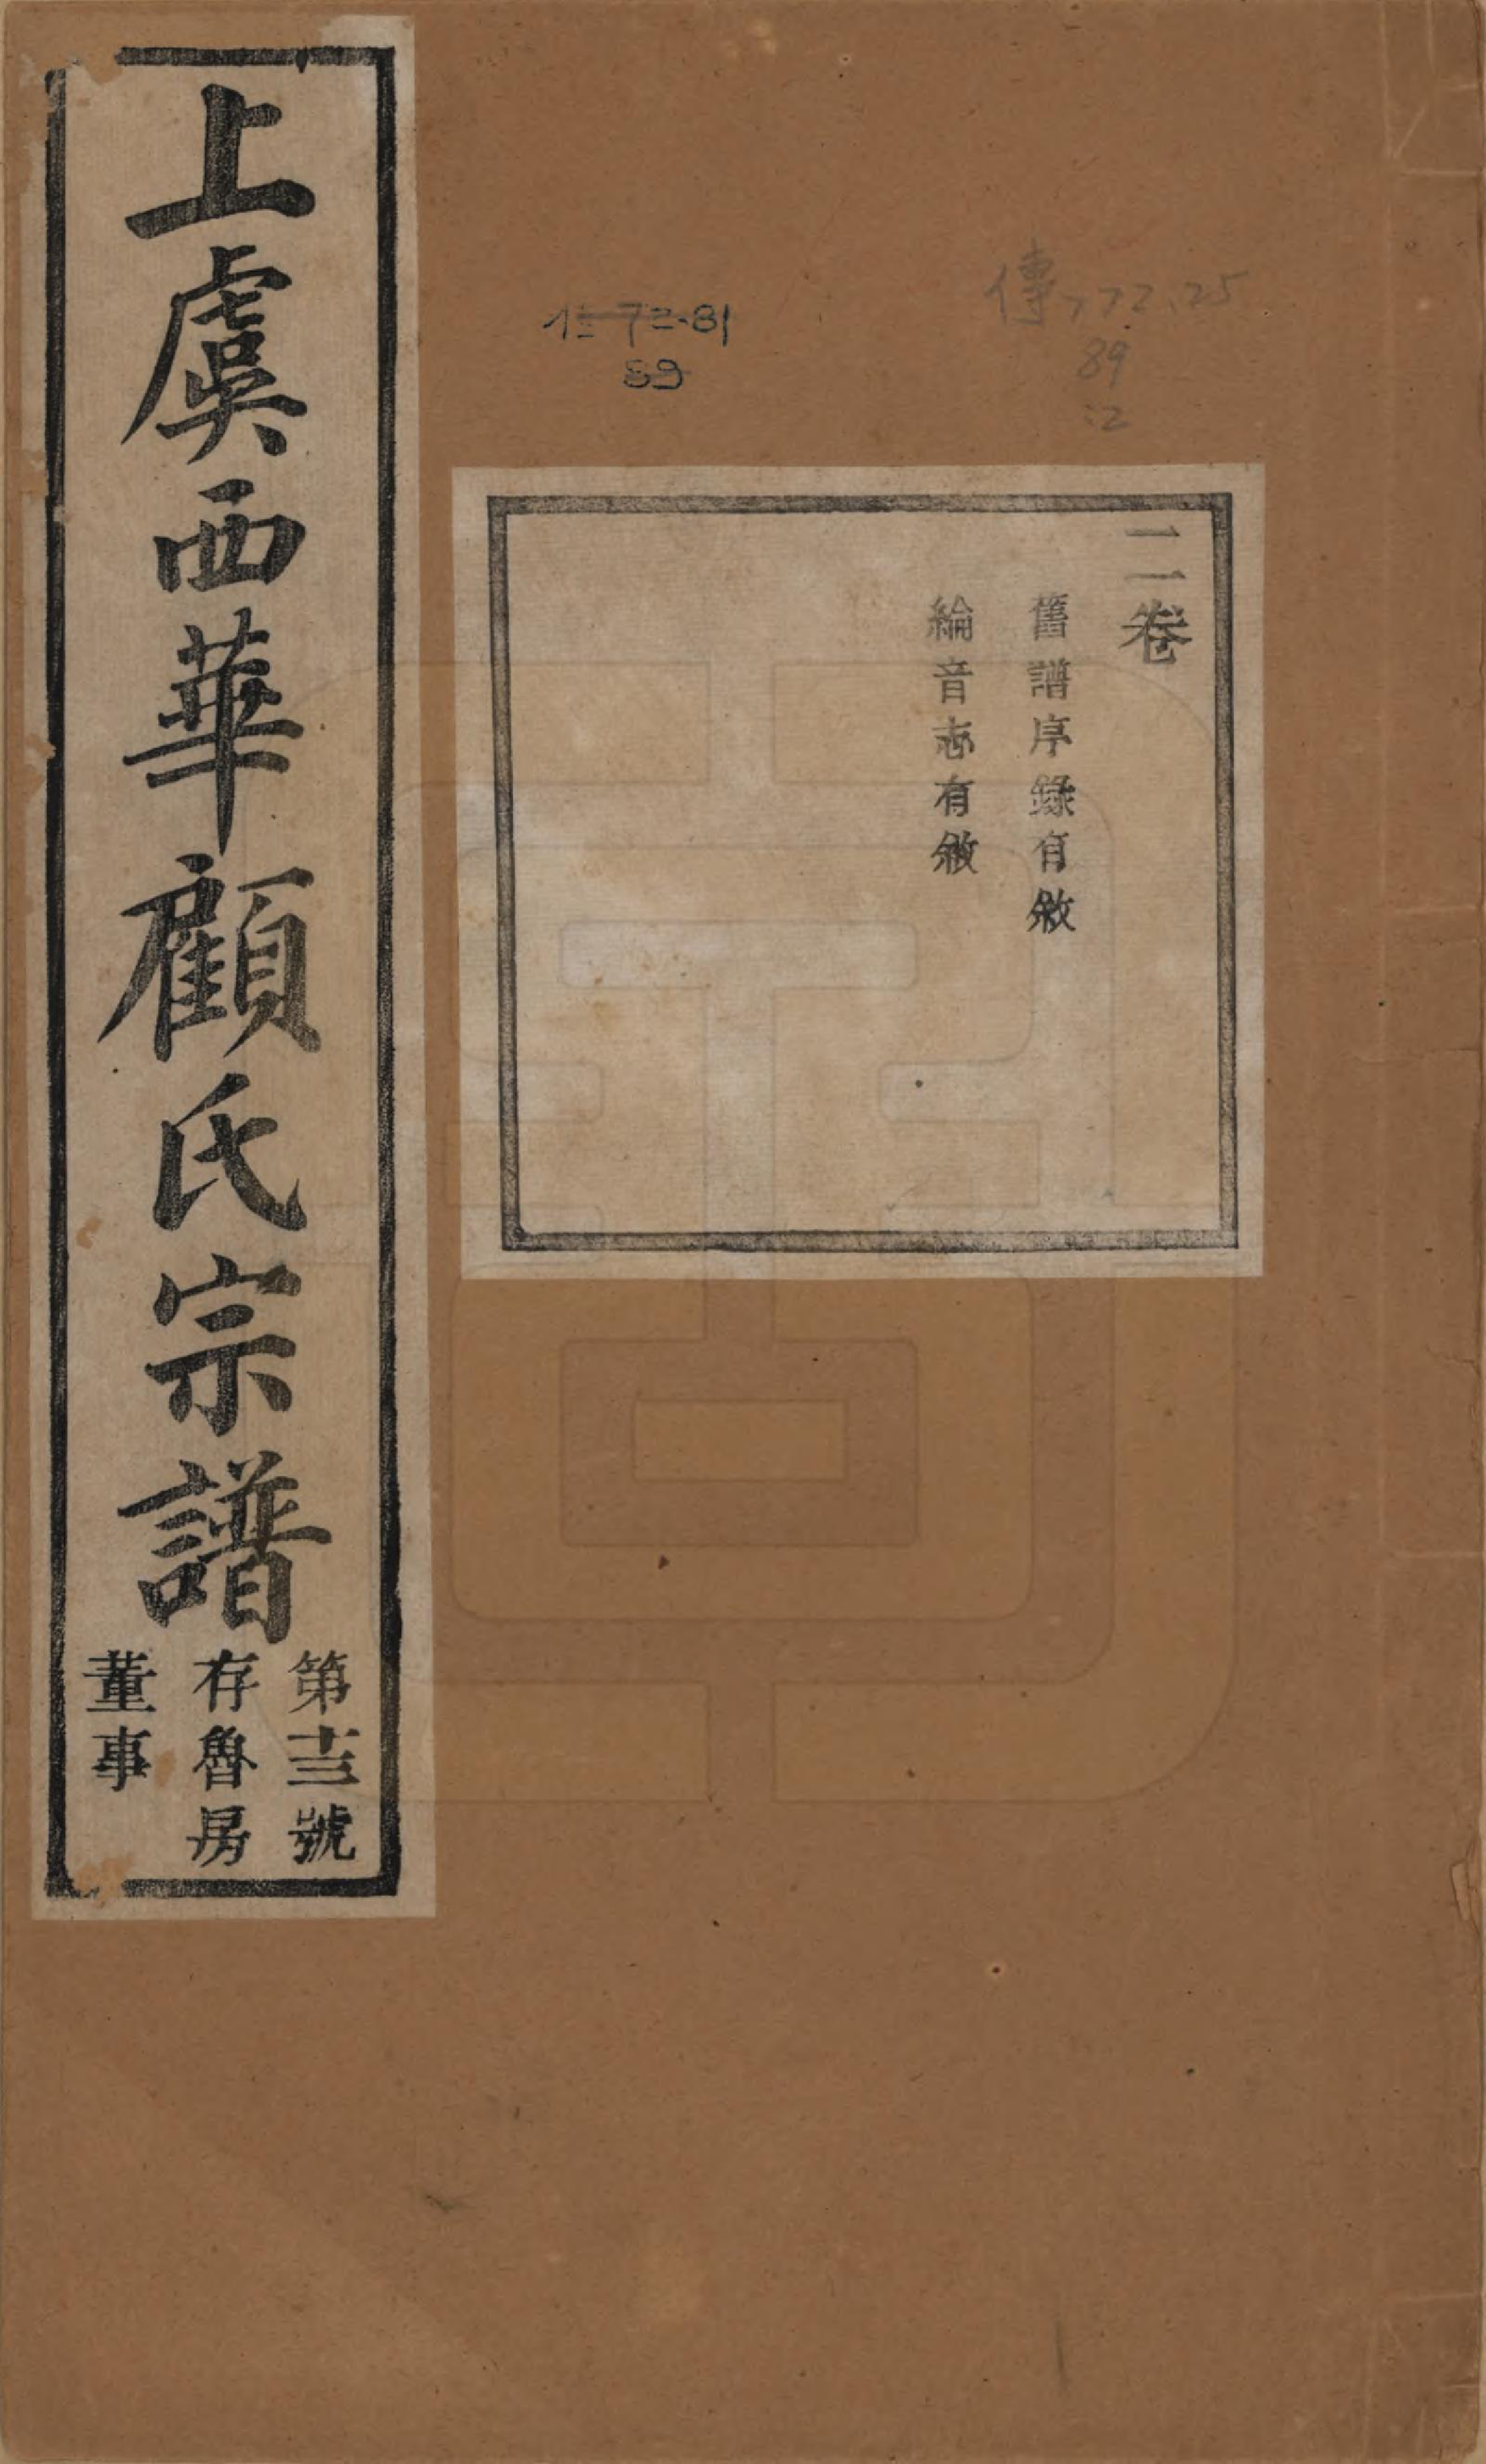 二卷
舊譜序錄有敘
綸音志有敘
上虞西華顧氏宗譜
第十三號
存魯房
董事
傳772.25
89
:2
72.81
89